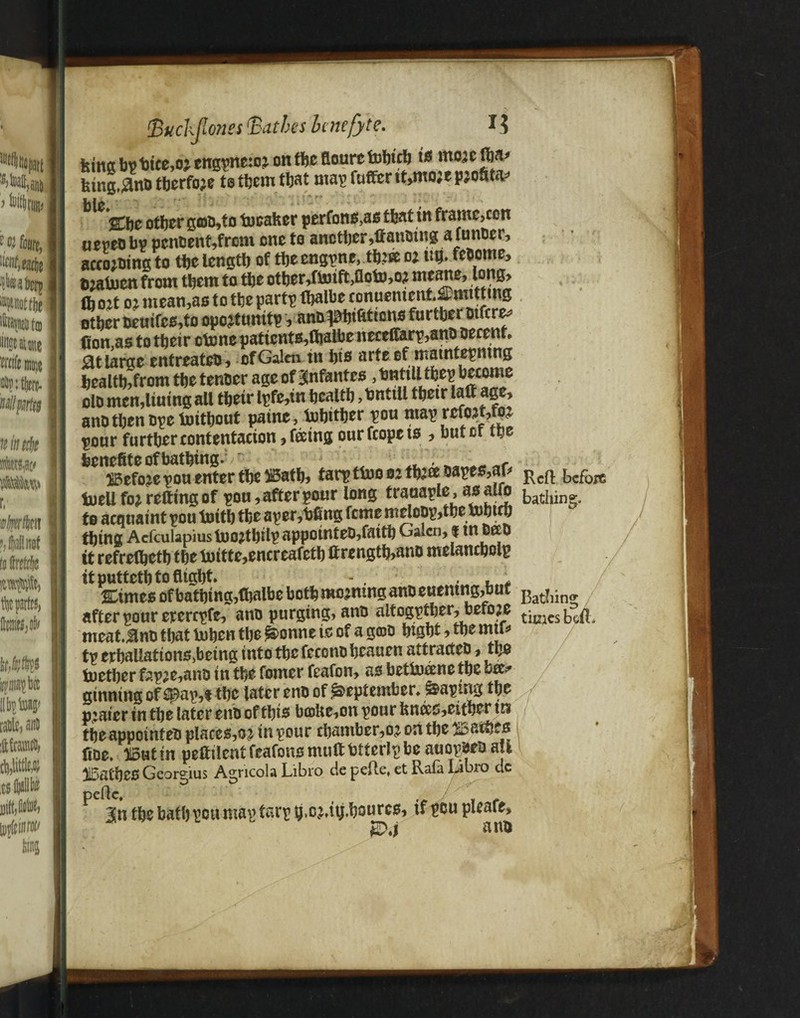 Buckstones Bathes benefyte. 13
king by vice, or engyne: or on the floure which is more sha-
king. And therfore to them that may suffer it, more profita-
ble.
The other good, to weaker persons, as that in frame, con
ueyed by pendent, from one to another, standing a sunder,
according to the length of the engyne, thrée or iiij. fedome,
drawen from them to the other, swift, slow, or meane, long,
short or mean, as to the party shalbe conuenient. Omitting
other deuises, to oportunity, and Phisitions further discre-
sion, as to their owne patients, shalbe necessary, and decent.
At large entreated, of Galen in his arte of maintepning
health, from the tender age of Infantes, vntill they become
old men, liuing all their lyfe, in health, vntill their last age,
and then dye without paine, whither you may resort, for
your further contentacion, séeing our scope is, but of the
benefite of bathing.
Before you enter the Bath, tary two or thrée dayes, as-
well for resting of you, after your long trauayle, as also
to acquaint you with the ayer, vsing some melody, the which
thing Aesculapius worthily appointed, saith Galen, & in déed
it refresheth the witte, encreaseth strength, and melancholy
it putteth to flight.
Rest before
bathing.
Times of bathing, shalbe both morning and euening, but
after your exercyse, and purging, and altogyther, before
meat. And that when the Sonne is of a good hight, the mis-
ty exhallations, being into the second heauen attracted, the
wether fayre, and in the somer season, as betwéene the bée-
ginning of May, & the later end of September. Saying the
praier in the later end of this booke, on your knées, either in
the appointed places, or in your chamber, or on the Bathes
side. But in pestilent seasons must vtterly be auoyded all
Bathes Georgius Agricola Libro de peste, et Rasa Libro de
peste.
Bathing
times best.
In the bath you may tary ij. or. iij. houres, if you please,
D.j and